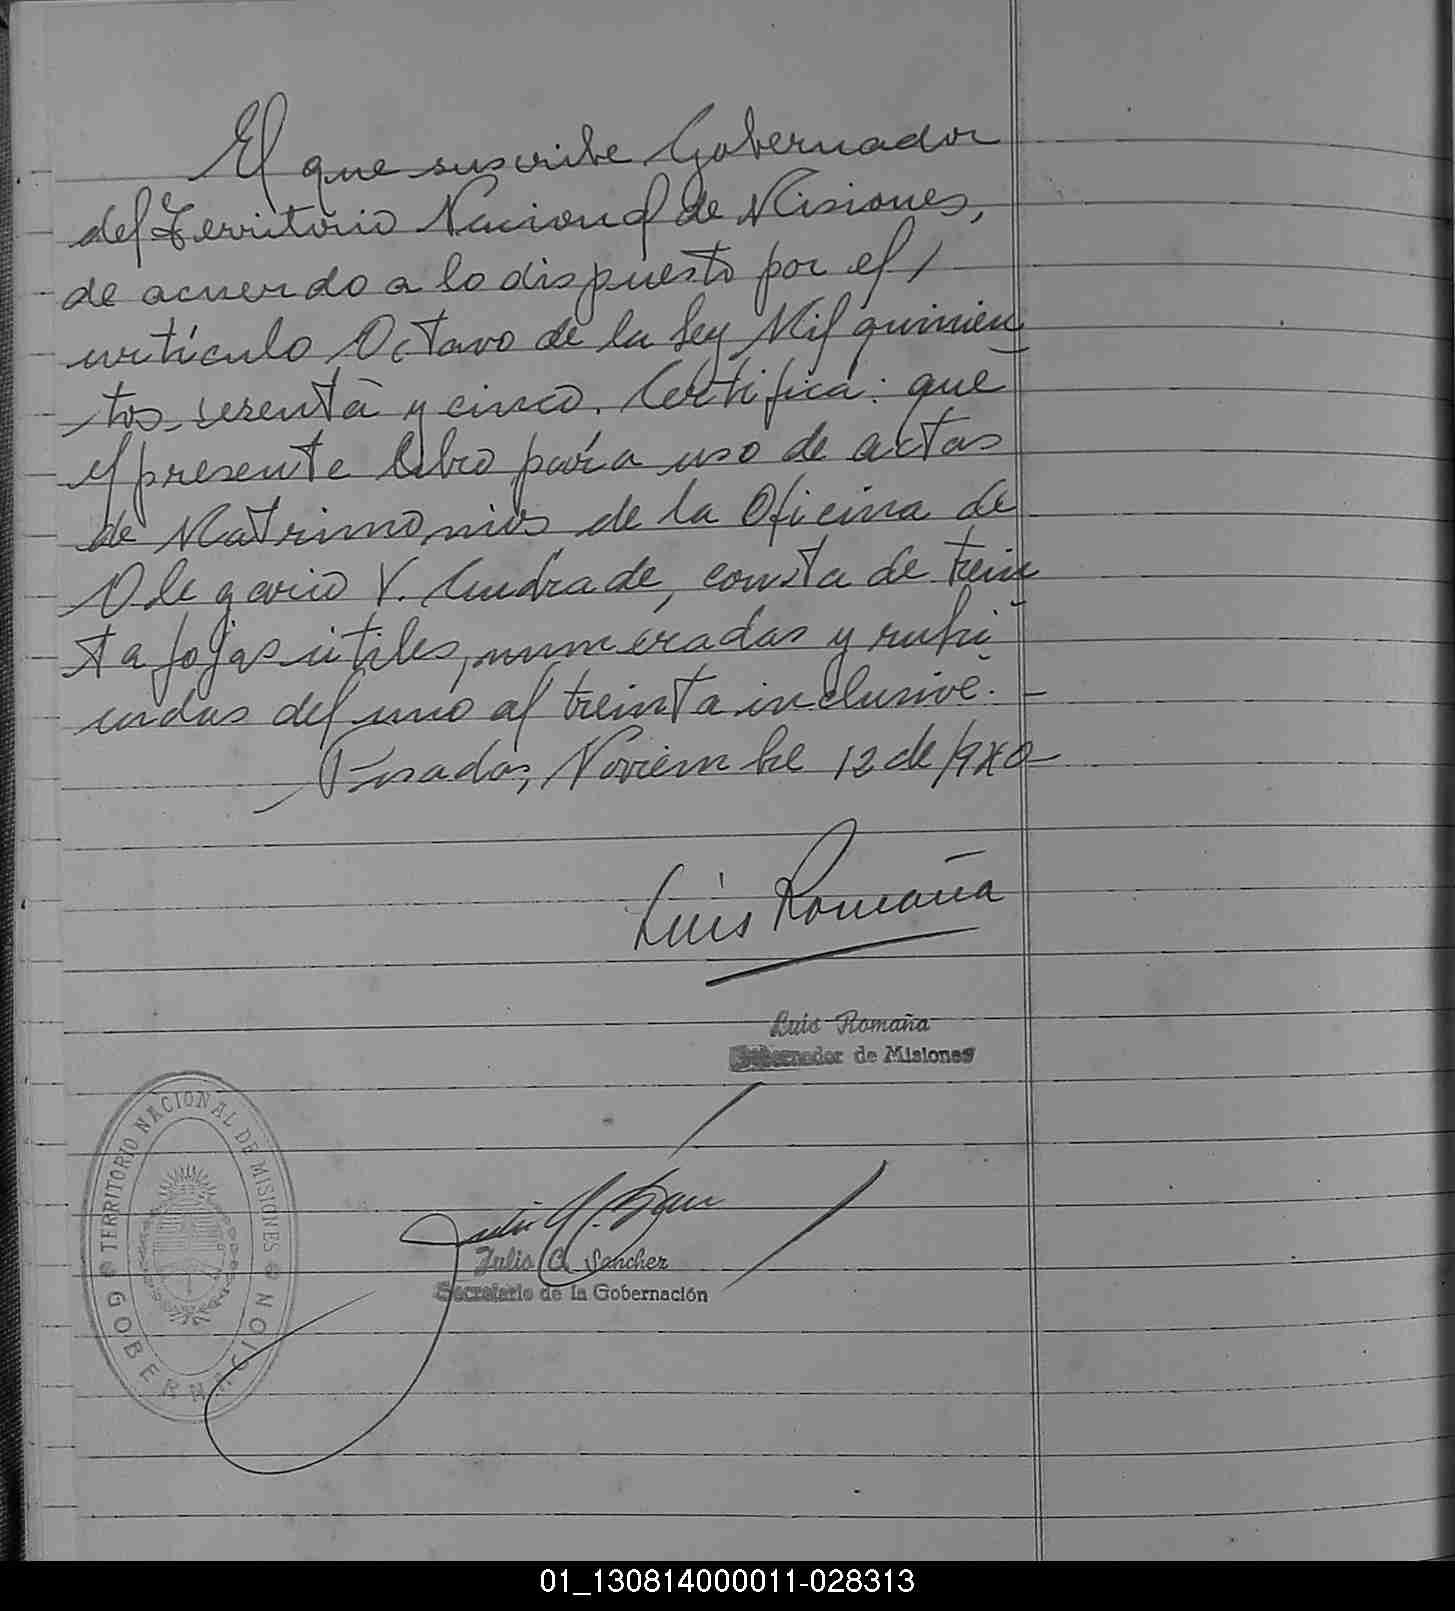 El que suscribe Gobernador
del Territorio Nacional de Misiones,
de acuerdo a lo dispuesto por el /
artículo Octavo de la Ley Mil quinien
tos sesenta y cinco. Certifica: que
el presente libro para uso de actas
de Matrimonios de la Oficina de
Olegario V. Andrade, consta de trein
ta fojas útiles, numeradas y rubri
cadas del uno al treinta inclusive. -
Posadas, Noviembre 12 de 1940
Luis Romaña
Luis Romaña
Gobernador de Misiones
TERRITORIO NACIONAL DE MISIONES
GOBERNACION
Julio A. Sanchez
Secretario de la Gobernación
01_130814000011-028313